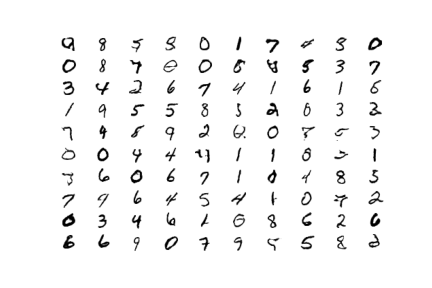 9 8 5 8 0 1 7 4 3 0
0 8 7 0 0 5 8 5 3 7
3 4 2 6 7 4 1 6 1 6
1 9 5 5 8 3 2 0 3 2
7 9 8 9 2 0 0 7 5 3
0 0 4 4 1 1 0 1
3 6 0 6 7 1 0 4 8 5
7 9 6 4 5 4 1 0 7 2
0 3 4 6 1 0 8 6 2 6
6 6 9 0 7 9 5 5 8 2